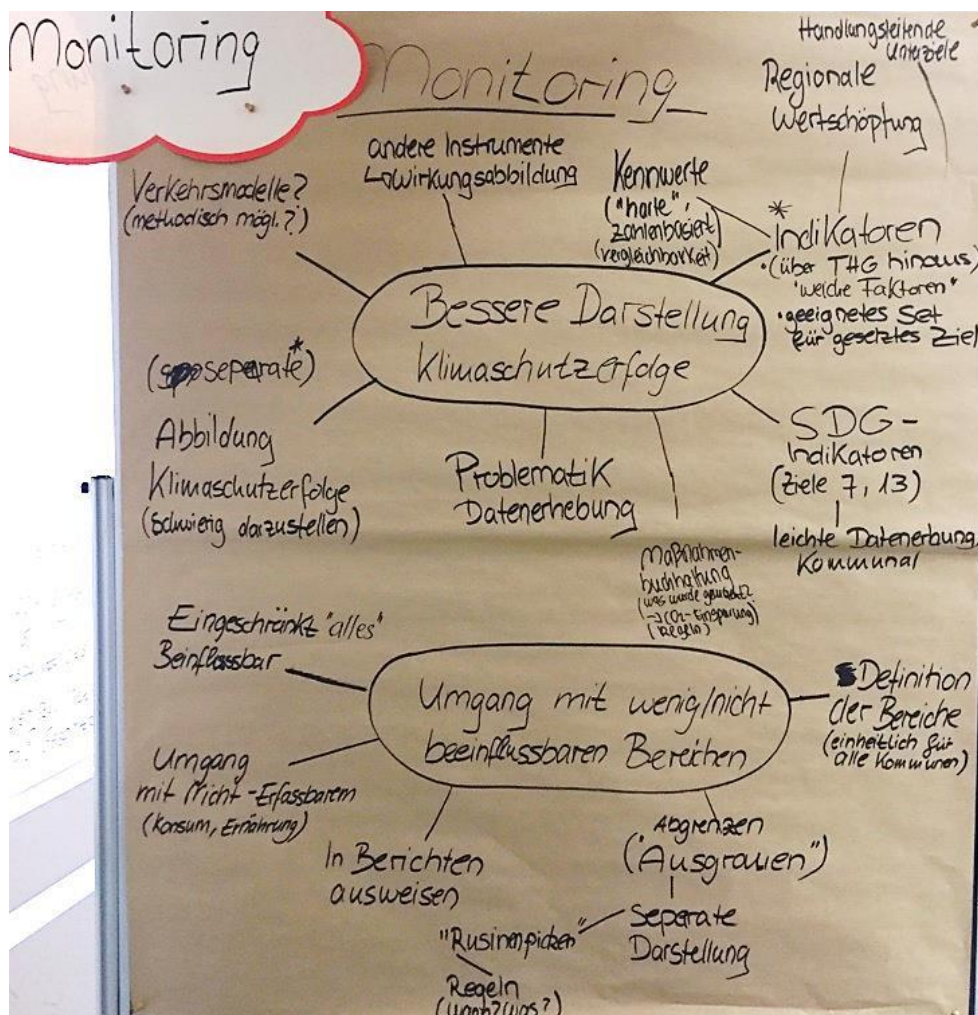 Monitoring
Monitoring
Handlungsleitende
Unterziele
Regionale
Wertschöpfung
andere Instrumente
↳Wirkungsabbildung
Kennwerte
("harte",
zahlenbasiert)
(vergleichbarkeit)
Verkehrsmodelle?
(methodisch mögl.?)
*
Indikatoren
•(über THG hinaus)
"weiche Faktoren"
•geeignetes Set
für gesetztes Ziel
Bessere Darstellung
Klimaschutzerfolge
(separate*)
Abbildung
Klimaschutzerfolge
(schwierig darzustellen)
Problematik
Datenerhebung
SDG-
Indikatoren
(Ziele 7, 13)
leichte Datenerbung,
Kommunal
Maßnahmen-
buchhaltung
(was wurde gemacht?
→ CO2-Einsparung)
(Regeln)
Eingeschränkt "alles"
Beinflussbar
Umgang mit wenig/nicht
beeinflussbaren Bereichen
Definition
der Bereiche
(einheitlich für
alle Kommunen)
Umgang
mit Nicht-Erfassbarem
(Konsum, Ernährung)
In Berichten
ausweisen
Abgrenzen
("Ausgrauen")
Separate
Darstellung
"Rusinenpicken"
Regeln
(wann? was?)